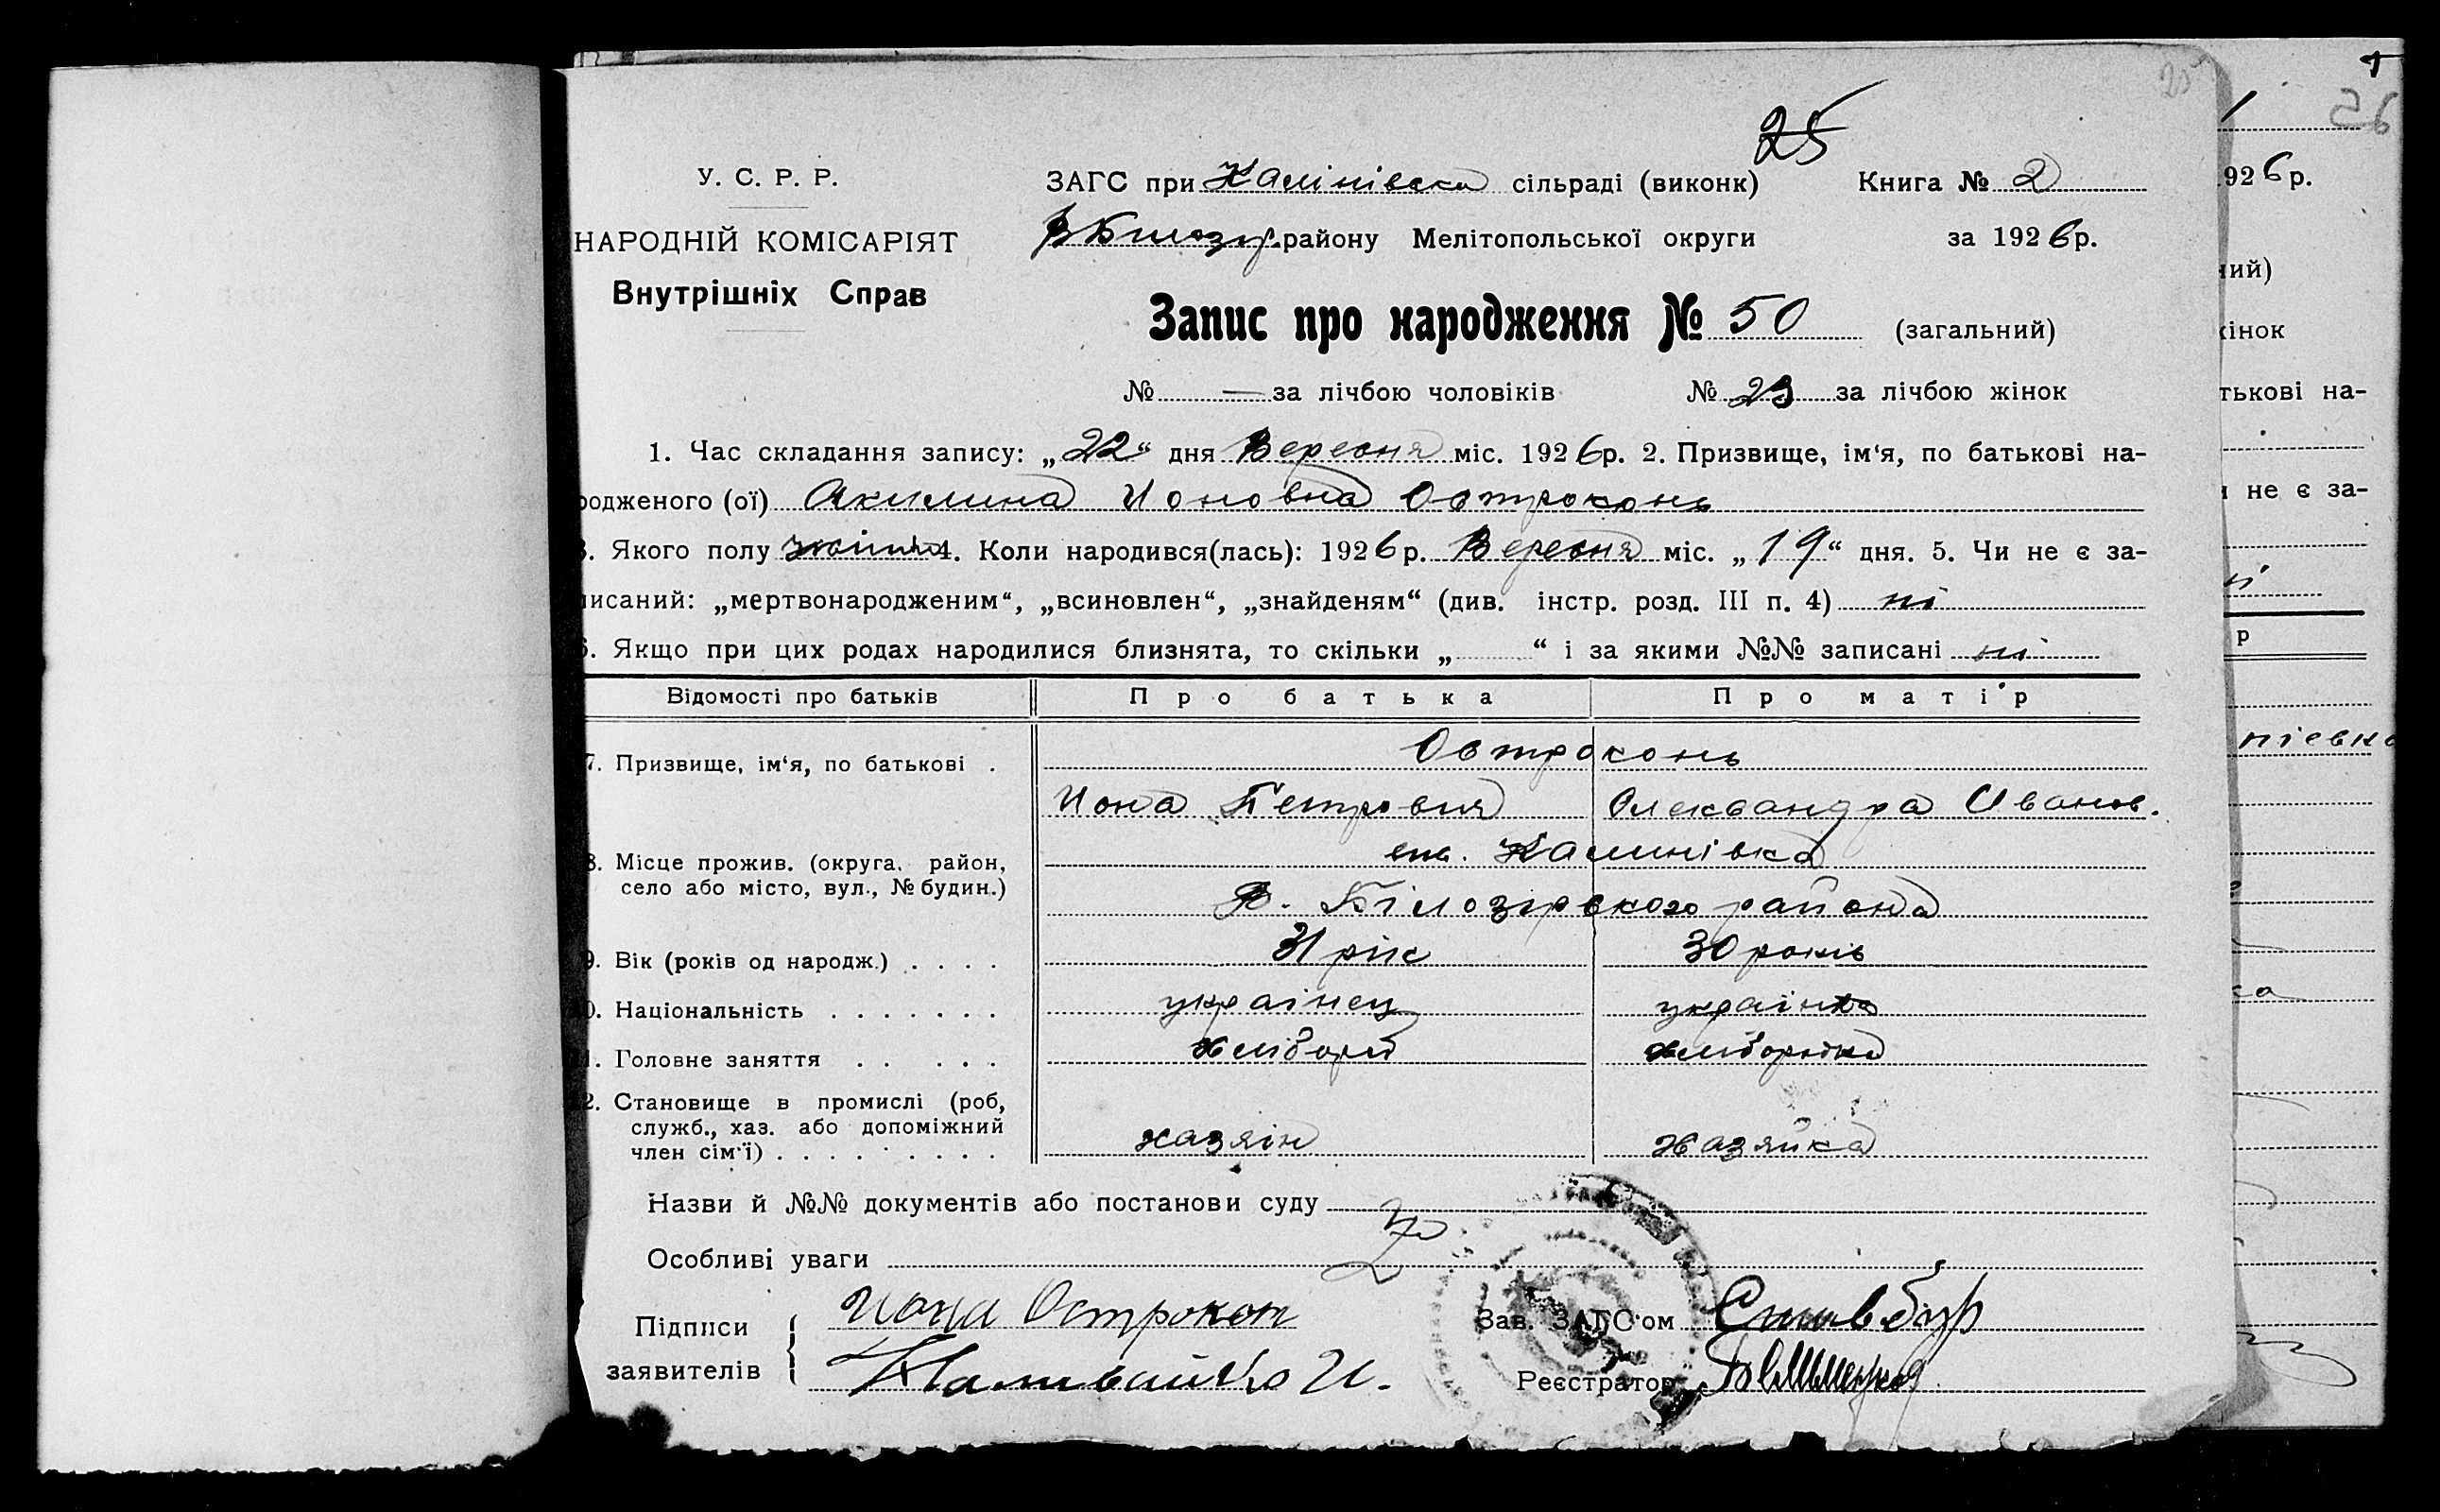 25
У. С. Р. Р.
НАРОДНІЙ КОМІСАРІЯТ
Внутрішніх Справ
25
ЗАГС при Калінівска сільраді (виконк) Книга № 2
В Білозір. району Мелітопольської округи за 1926 р.
Запис про народження № 50 (загальний)
№ — за лічбою чоловіків № 23 за лічбою жінок
1. Час складання запису: „22“ дня Вересня міс. 1926 р. 2. Призвище, ім‘я, по батькові на-
родженого (ої) Акилина Ионовна Остроконь
3. Якого полу 4. Коли народився(лась): 1926 р. Вересня міс. „19“ дня. 5. Чи не є за-
писаний: „мертвонародженим“, „всиновлен“, „знайденям“ (див. інстр. розд. III п. 4) ні
6. Якщо при цих родах народилися близнята, то скільки „ “ і за якими №№ записані ні
Відомості про батьків Про батька Про матір
7. Призвище, ім‘я, по батькові . Остроконь
Иона Петрович Олександра Иванов.
8. Місце прожив. (округа, район, Калинівка
село або місто, вул., № будин.) В. Білозірского района
9. Вік (років од народж.) . . . . 31 рік 30 років
10. Національність . . . . . . . українец українка
11. Головне заняття . . . . . хлібороб хліборобка
12. Становище в промислі (роб,
служб., хаз. або допоміжний
член сім‘ї) . . . . . . . . . хазяін хазяйка
Назви й №№ документів або постанови суду
Особливі уваги
Підписи Иона Острокон Зав. ЗАГС‘ом
заявителів Наливайко И. Реєстратор
1
26
1926 р.
ний)
жінок
тькові на-
и не є за-
ні
р